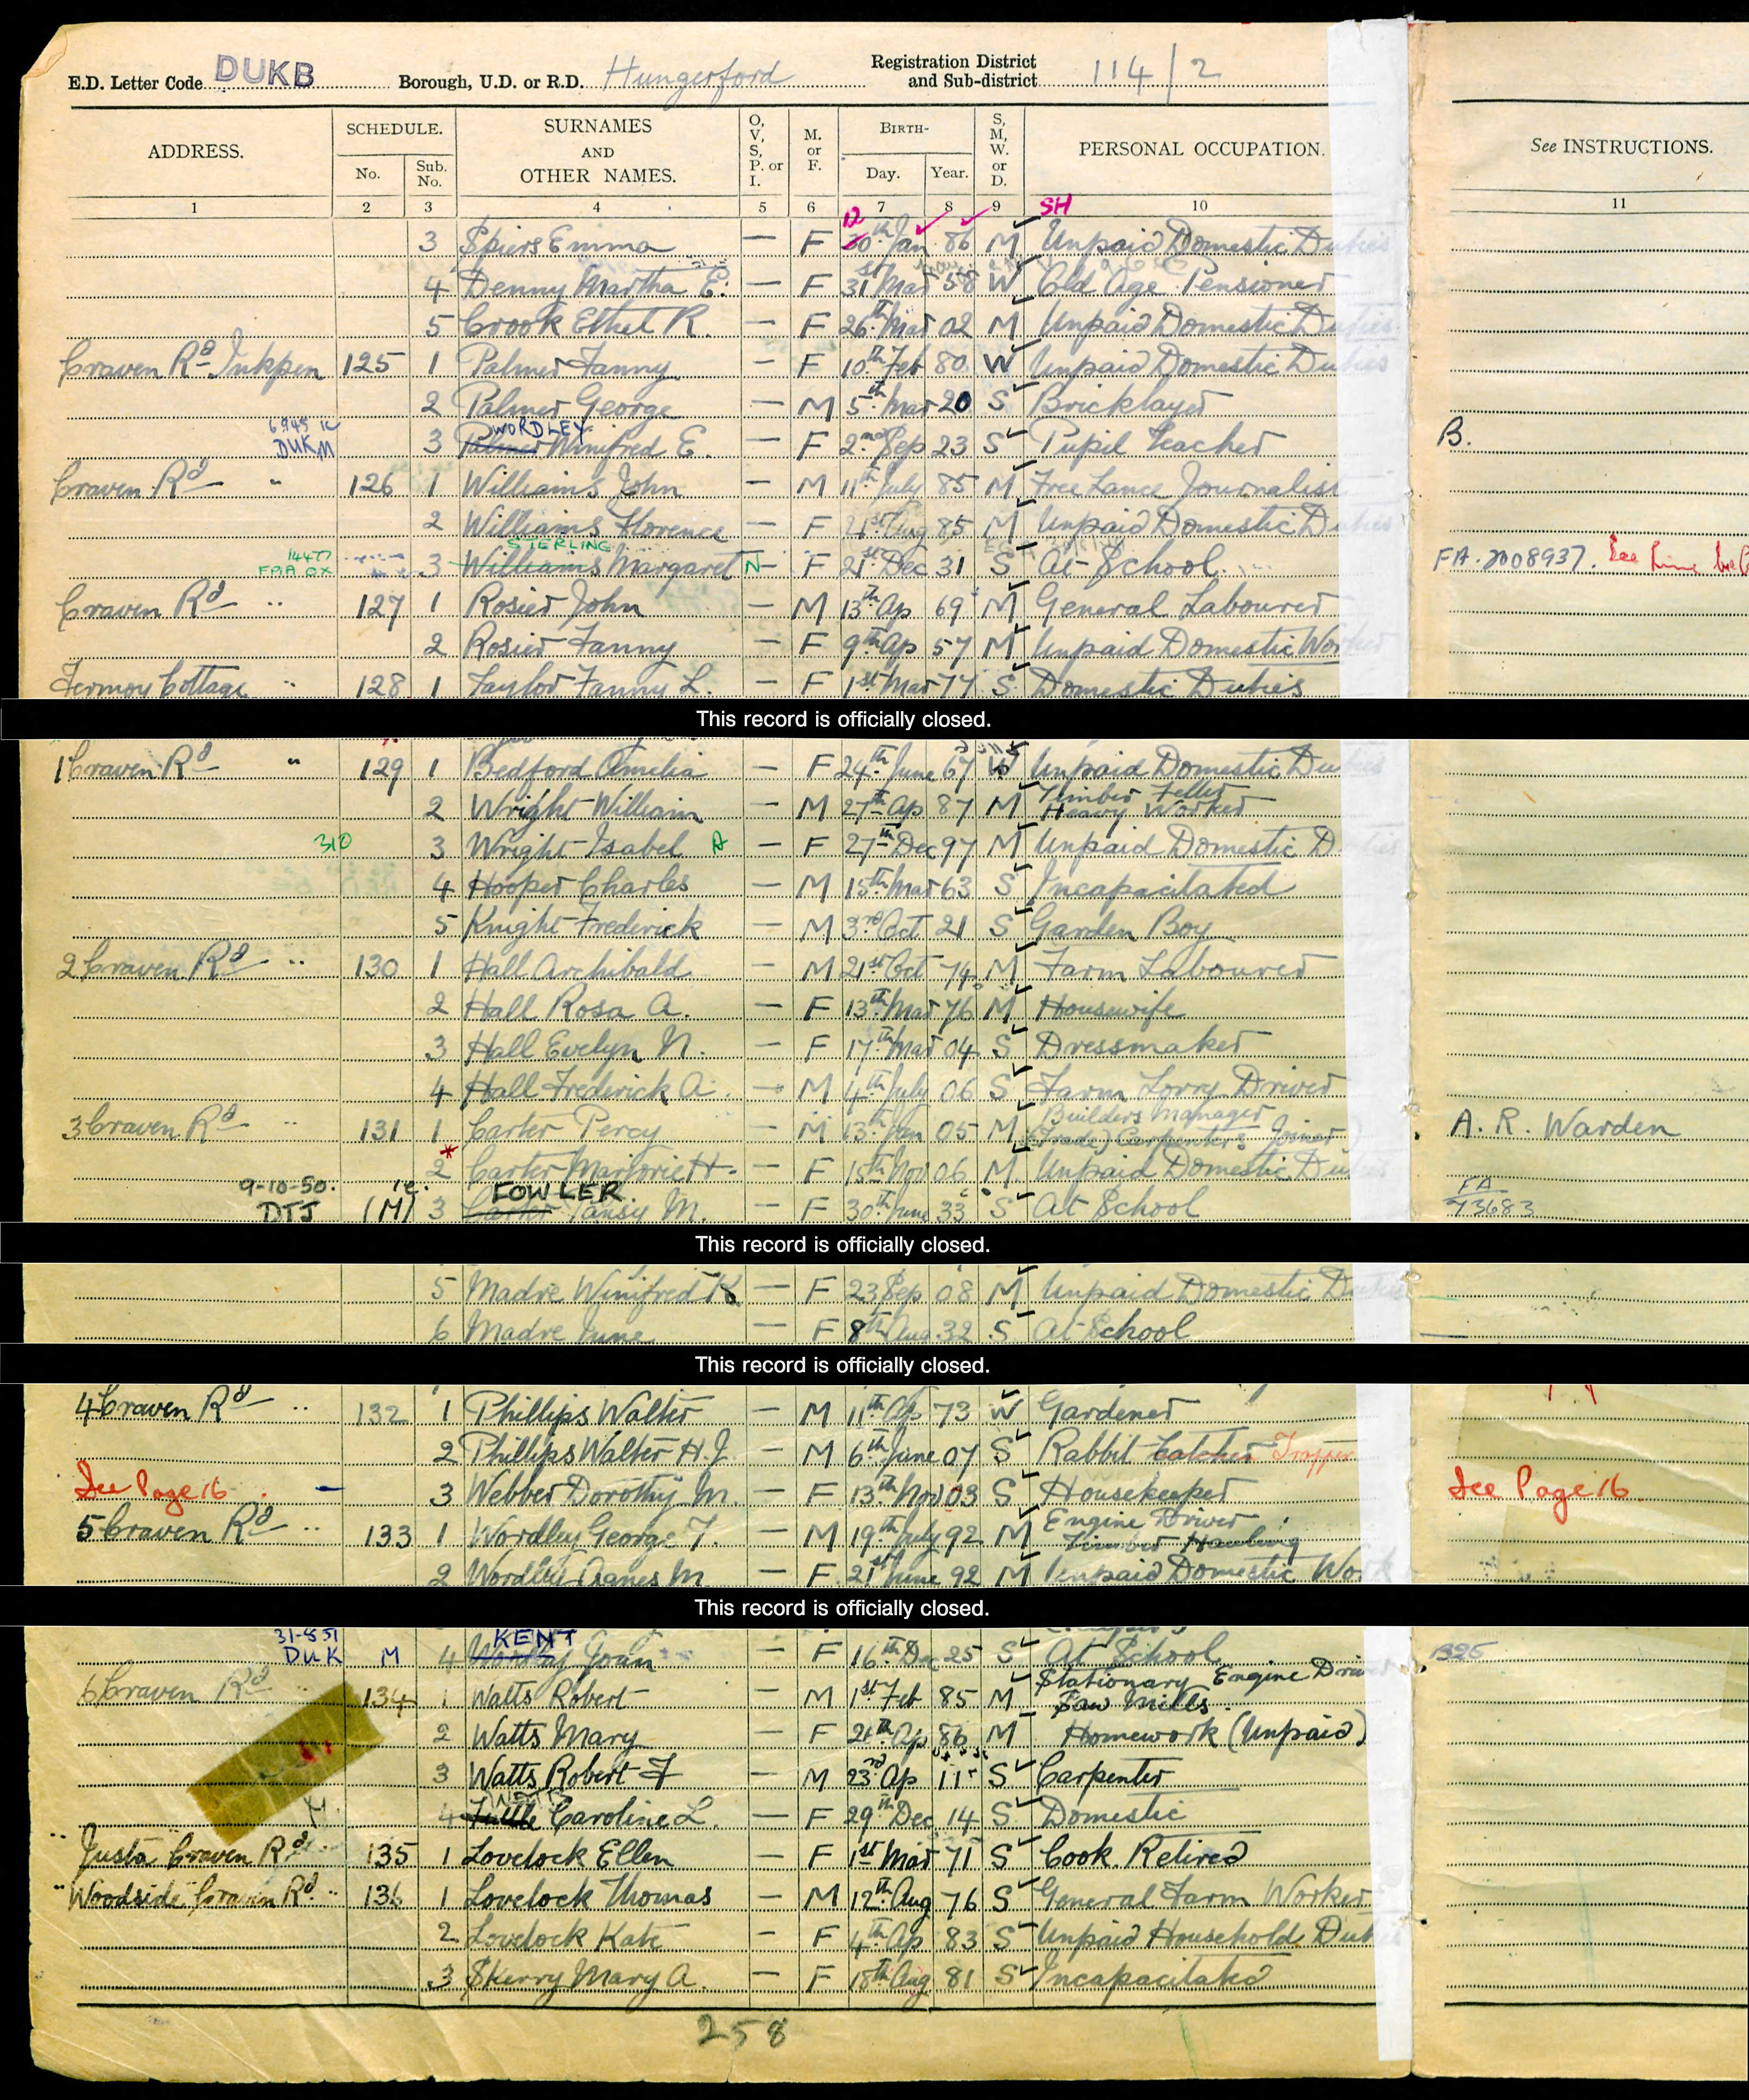 E.D. Letter Code DUKB Borough, U.D. or R.D. Hungerford Registration District and Sub-district 114/2
ADDRESS. SCHEDULE. No. Sub. No. SURNAMES AND OTHER NAMES. O, V, S, P. or I. M. or F. BIRTH- Day. Year. S, M, W. or D. PERSONAL OCCUPATION. See INSTRUCTIONS.
1 2 3 4 5 6 7 8 9 10 11
12 SH
3 Spiers Emma — F 30th Jan 86 M Unpaid Domestic Duties
4 Denny Martha E. — F 31st Mar 58 W Old Age Pensioner
5 Crook Ethel R. — F 26th Mar 02 M Unpaid Domestic Duties
Craven Rd Inkpen 125 1 Palmer Fanny — F 10th Feb 80 W Unpaid Domestic Duties
2 Palmer George — M 5th Mar 20 S Bricklayer
DUKM WORDLEY
3 Palmer Winifred E. — F 2nd Sep 23 S Pupil Teacher B.
Craven Rd " 126 1 Williams John — M 11th July 85 M Free Lance Journalist
2 Williams Florence — F 21st Aug 85 M Unpaid Domestic Duties
14477 STERLING
FAA OX 3 Williams Margaret N — F 21st Dec 31 S At School FA.2008937. See
Craven Rd " 127 1 Rosier John — M 13th Ap 69 M General Labourer
2 Rosier Fanny — F 9th Ap 57 M Unpaid Domestic Worker
Fermoy Cottage " 128 1 Taylor Fanny L. — F 1st Mar 77 S Domestic Duties
This record is officially closed.
1 Craven Rd " 129 1 Bedford Amelia — F 24th June 67 W Unpaid Domestic Duties
2 Wright William — M 27th Ap 87 M Timber Feller Heavy Worker
310 3 Wright Isabel A — F 27th Dec 97 M Unpaid Domestic D
4 Hooper Charles — M 15th Mar 63 S Incapacitated
5 Knight Frederick — M 3rd Oct 21 S Garden Boy
2 Craven Rd " 130 1 Hall Archibald — M 21st Oct 74 M Farm Labourer
2 Hall Rosa A. — F 13th Mar 76 M Housewife
3 Hall Evelyn N. — F 17th Mar 04 S Dressmaker
4 Hall Frederick A. — M 4th July 06 S Farm Lorry Driver
3 Craven Rd " 131 1 Carter Percy — M 13th Jan 05 M Builders Manager (Trade) Carpenters Joiner) A. R. Warden
* 2 Carter Marjorie H. — F 15th Nov 06 M Unpaid Domestic Du
9-10-50. FOWLER.
DTJ (M) 3 Carter Tansy M. — F 30th June 33 S At School FA 73683
This record is officially closed.
5 Madre Winifred K — F 23 Sep 08 M Unpaid Domestic Duties
6 Madre June — F 8th Aug 32 S At School
This record is officially closed.
4 Craven Rd " 132 1 Phillips Walter — M 11th Ap 73 W Gardener
2 Phillips Walter H.J. — M 6th June 07 S Rabbit Catcher Trapper
See Page 16 3 Webber Dorothy M. — F 13th Nov 03 S Housekeeper See Page 16
5 Craven Rd " 133 1 Wordley George T. — M 19th July 92 M Engine Driver Timber Hauling
2 Wordley Agnes M — F 21st June 92 M Unpaid Domestic Work
This record is officially closed.
31-8-51 KENT
DUK M 4 Wordley Joan — F 16th Dec 25 S At School
6 Craven Rd " 134 1 Watts Robert — M 1st Feb 85 M Stationary Engine Driver Saw Mills
2 Watts Mary — F 21th Ap 86 M Homework (Unpaid)
3 Watts Robert F — M 23rd Ap 11 S Carpenter
M 4 Tuttle Caroline L. — F 29th Dec 14 S Domestic
"Justa" Craven Rd " 135 1 Lovelock Ellen — F 1st Mar 71 S Cook Retired
"Woodside" Craven Rd " 136 1 Lovelock Thomas — M 12th Aug 76 S General Farm Worker
2 Lovelock Kate — F 4th Ap 83 S Unpaid Household Dut
3 Skerry Mary A. — F 18th Aug 81 S Incapacitated
258